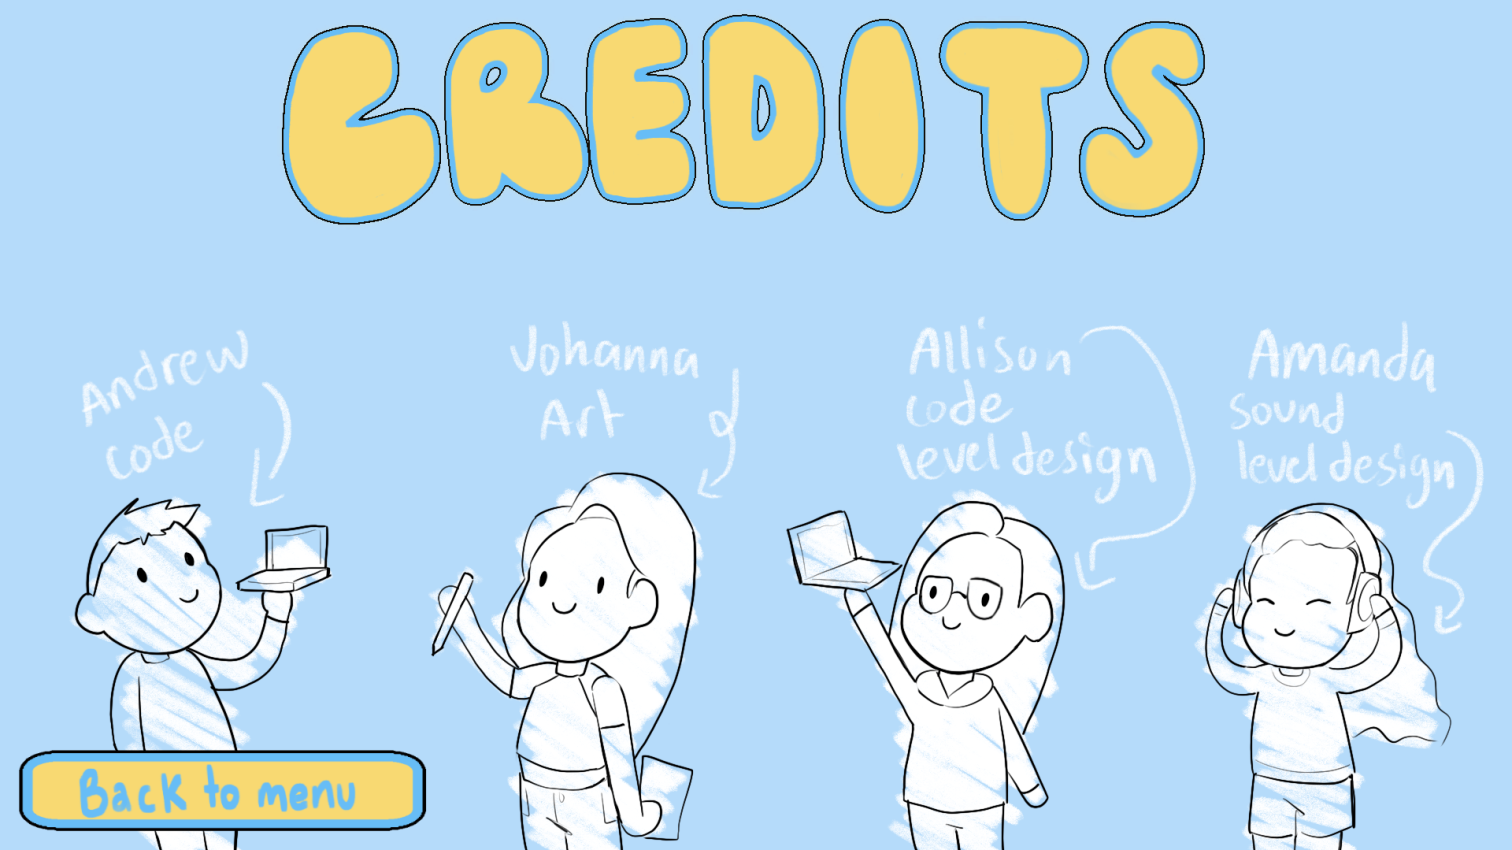 CREDITS
Andrew
code
Johanna
Art
Allison
code
level design
Amanda
sound
level design
Back to menu